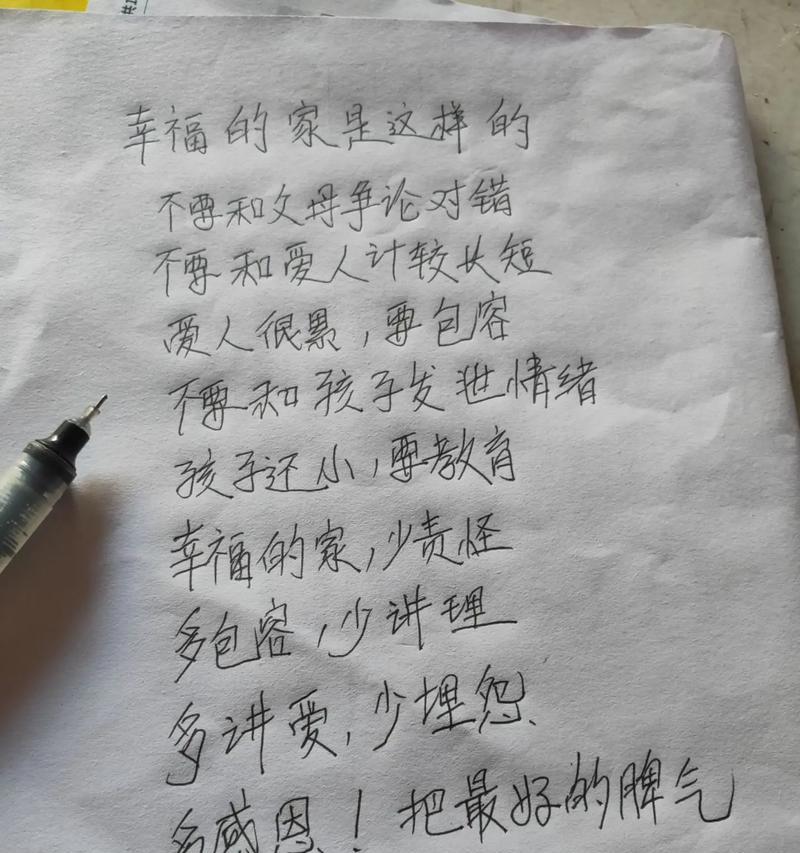 幸福的家是这样的
不要和父母争论对错
不要和爱人计较长短
爱人很累，要包容
不要和孩子发泄情绪
孩子还小，要教育
幸福的家，少责怪
多包容，少讲理
多讲爱，少埋怨
多感恩！把最好的脾气